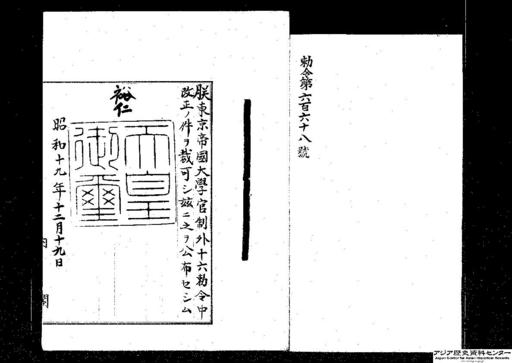 勅令第六百六十八號
朕東京帝國大學官制外十六勅令中
改正ノ件ヲ裁可シ茲ニ之ヲ公布セシム
裕仁
天皇御璽
昭和十九年十二月十九日
内閣
アジア歴史資料センター
Japan Center for Asian Historical Records